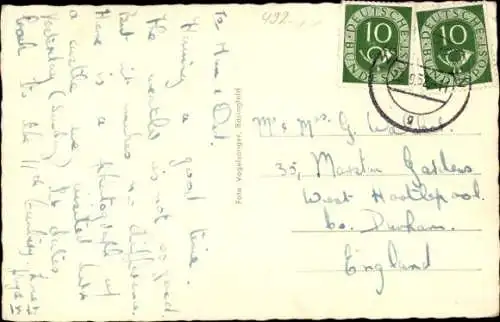 492
To Mum & Dad.
Having a good time.
The weather is not so good.
But it makes no difference.
Here is a photograph of
a castle we visited last
Yesterday (Sunday). It dates
back to the 11th Century.
Foto Vogelsänger, Bausgfeld
DEUTSCHE BUNDESPOST
10
DEUTSCHE BUNDESPOST
10
Mr & Mrs. G.
35, Gardens
West Hartlepool
Co. Durham.
England